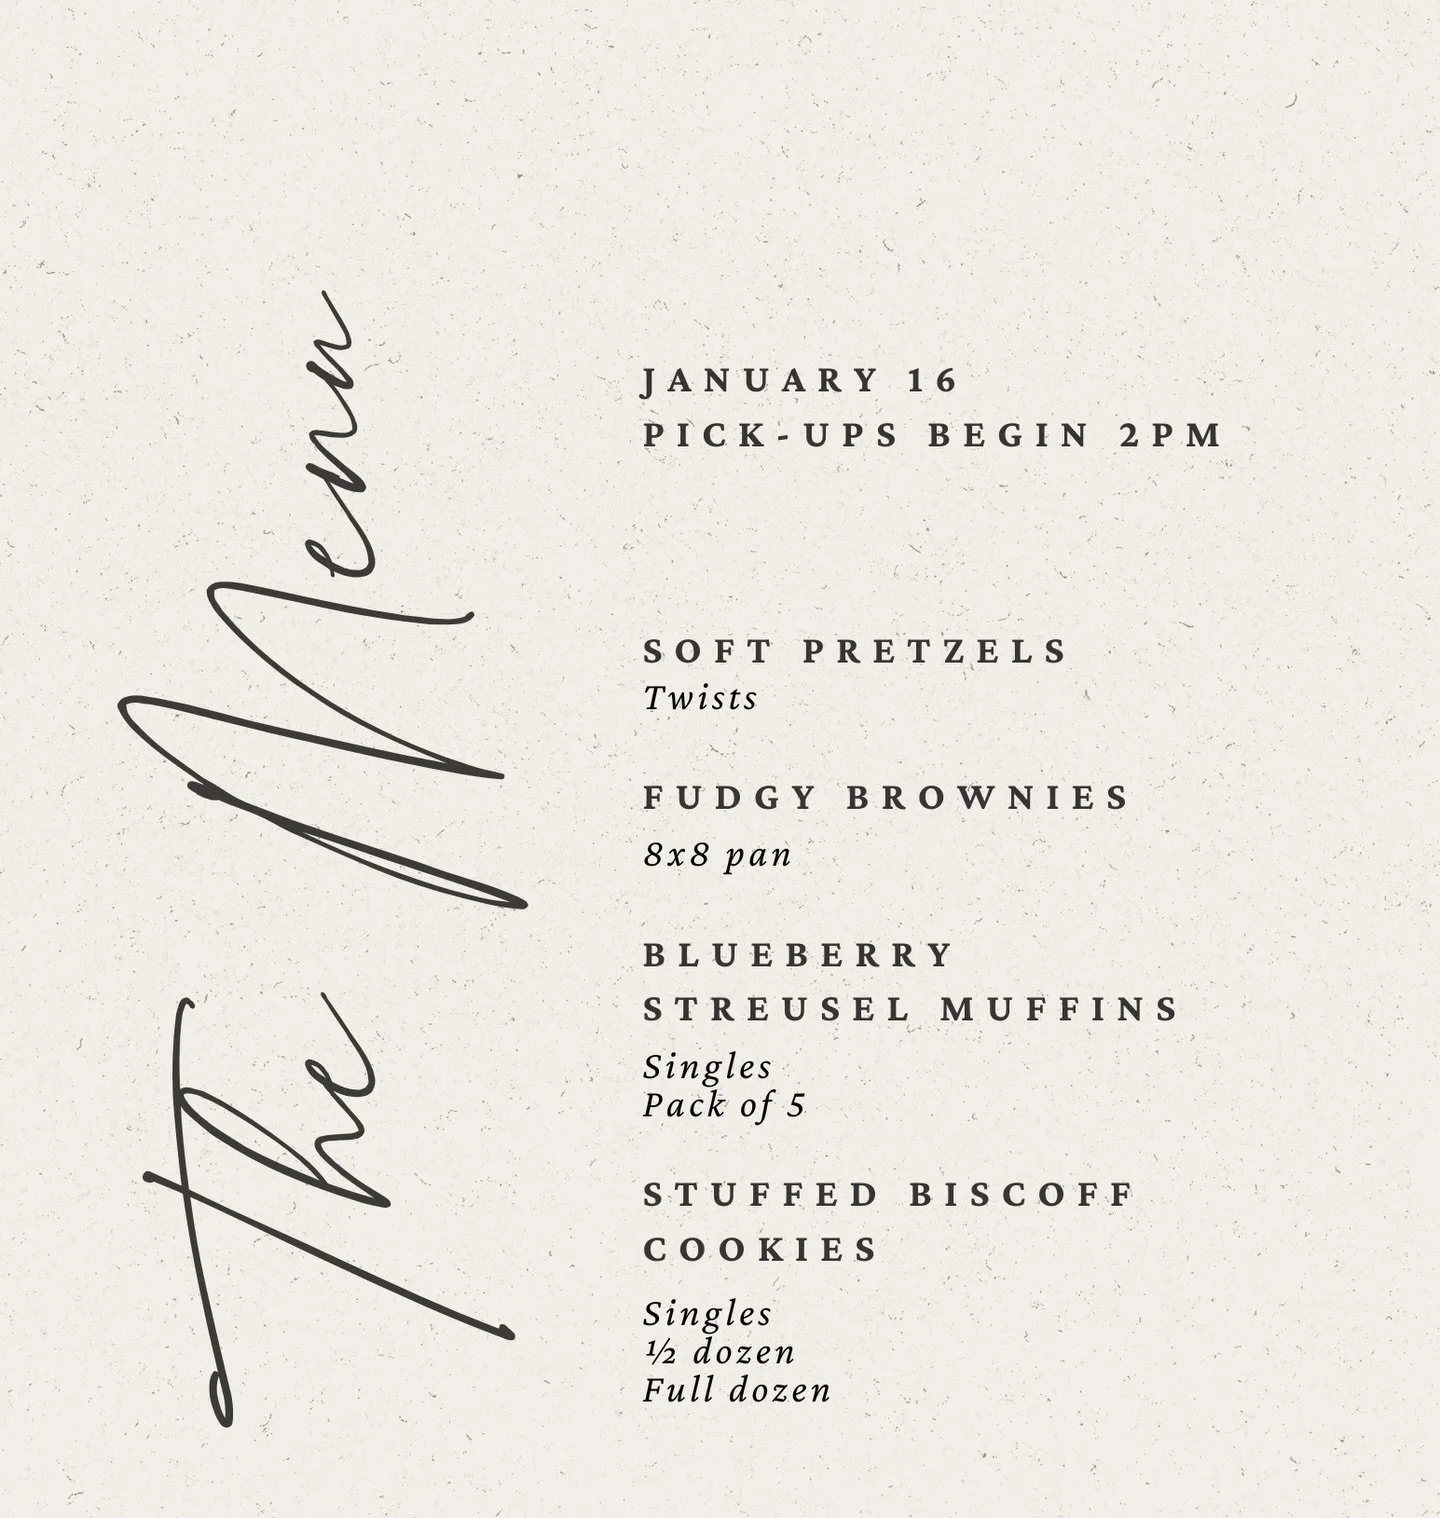 The Menu
JANUARY 16
PICK-UPS BEGIN 2PM
SOFT PRETZELS
Twists
FUDGY BROWNIES
8x8 pan
BLUEBERRY
STREUSEL MUFFINS
Singles
Pack of 5
STUFFED BISCOFF
COOKIES
Singles
½ dozen
Full dozen